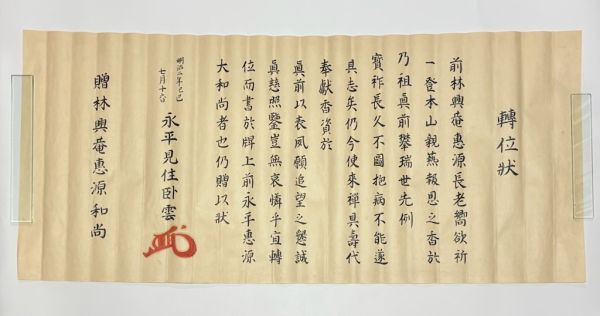 轉位狀
前林興庵惠源長老嚮欲祈
一登本山親爇報恩之香於
乃祖真前攀瑞世先例
寶祚長久不圖抱病不能遂
其志矣仍今使來禅具壽代
奉獻香資於
真前以表夙願追望之懇誠
真慈照鑒豈無哀憐乎宜轉
位而書於牌上前永平惠源
大和尚者也仍贈以狀
明治二年己巳
七月十六日
永平見住臥雲
贈林興菴惠源和尚